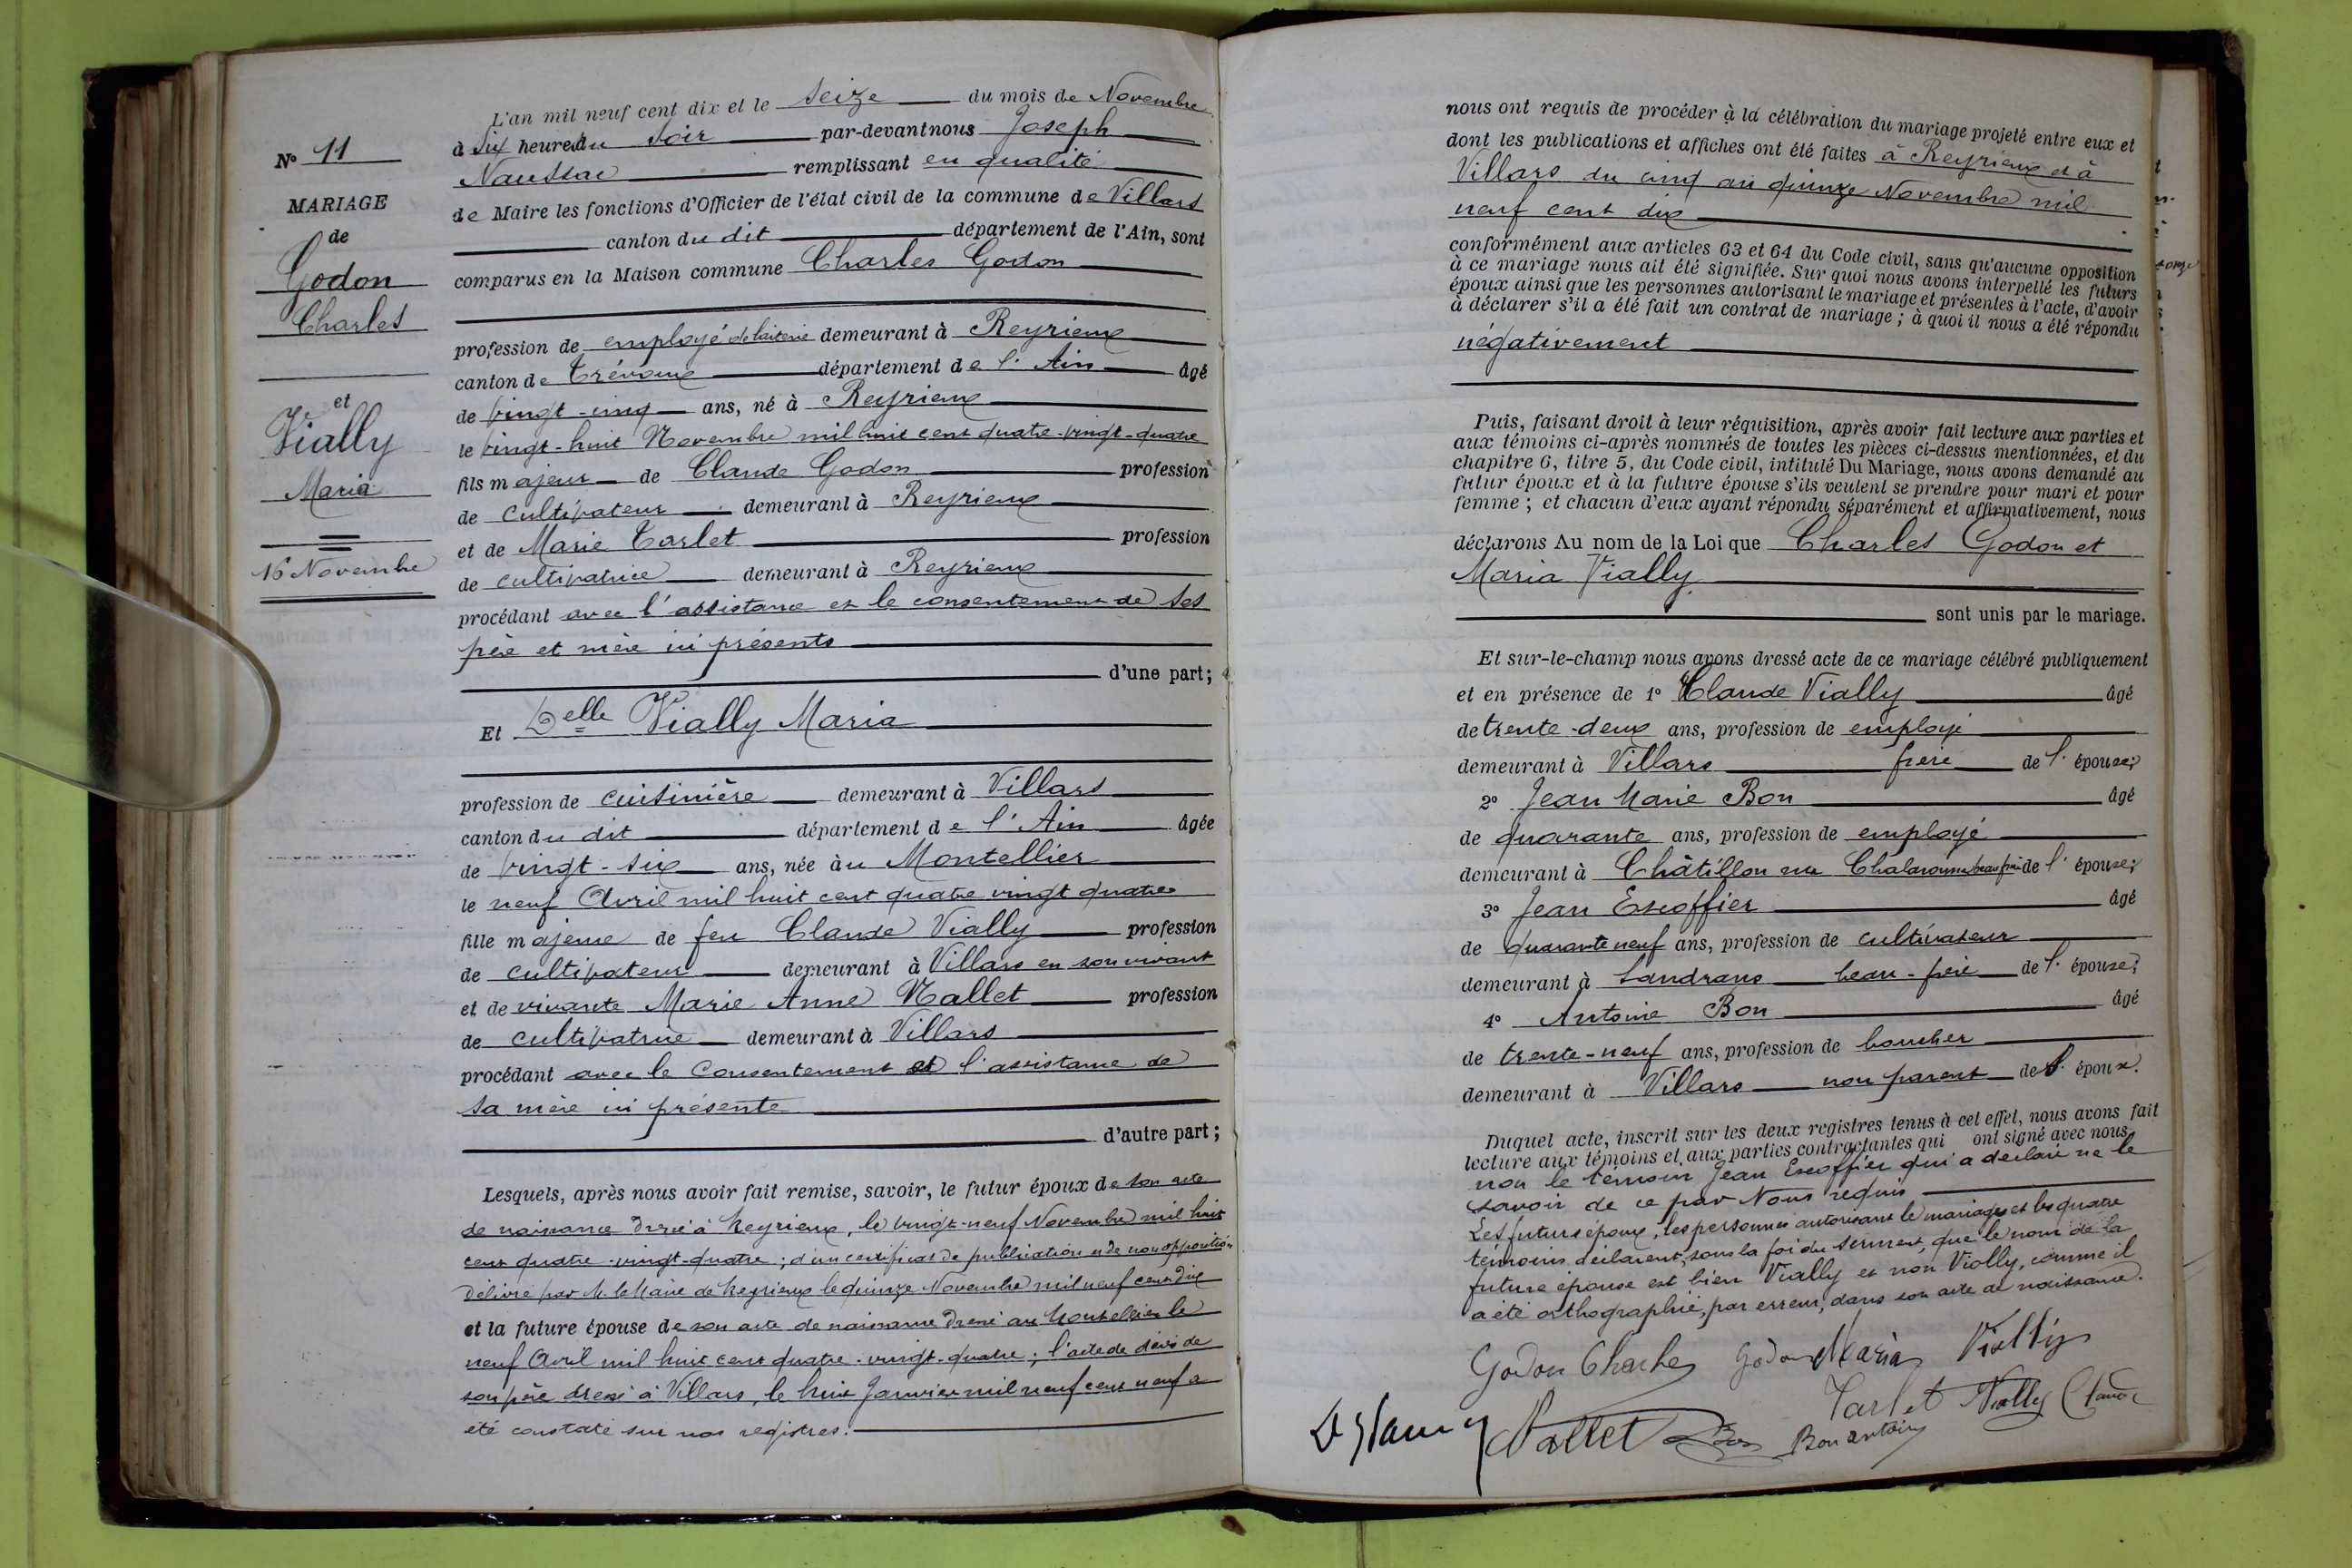 N° 11
MARIAGE
de
Godon
Charles
et
Vially
Maria
16 Novembre
L'an mil neuf cent dix et le seize du mois de Novembre
à six heures du soir par-devant nous Joseph
Naussac remplissant en qualité
de Maire les fonctions d'Officier de l'état civil de la commune de Villars
canton du dit département de l'Ain, sont
comparus en la Maison commune Charles Godon
profession de employé de laiterie demeurant à Reyrieux
canton de Trévoux département de l'Ain âgé
de vingt-cinq ans, né à Reyrieux
le vingt-huit Novembre mil huit cent quatre-vingt-quatre
fils majeur de Claude Godon profession
de cultivateur demeurant à Reyrieux
et de Marie Tarlet profession
de cultivatrice demeurant à Reyrieux
procédant avec l'assistance et le consentement de ses
père et mère ici présents
d'une part;
Et Delle Vially Maria
profession de cuisinière demeurant à Villars
canton du dit département de l'Ain âgée
de vingt-six ans, née au Montellier
le neuf Avril mil huit cent quatre vingt quatre
fille majeure de feu Claude Vially profession
de cultivateur demeurant à Villars en son vivant
et de vivante Marie Anne Nallet profession
de cultivatrice demeurant à Villars
procédant avec le Consentement et l'assistance de
sa mère ici présente
d'autre part;
Lesquels, après nous avoir fait remise, savoir, le futur époux de son acte
de naissance dressé à Reyrieux, le vingt-neuf Novembre mil huit
cent quatre-vingt-quatre; d'un certificat de publication et de non opposition
délivré par M. le Maire de Reyrieux le quinze Novembre mil neuf cent dix
et la future épouse de son acte de naissance dressé au Montellier le
neuf Avril mil huit cent quatre-vingt-quatre; l'acte de décès de
son père dressé à Villars, le huit Janvier mil neuf cent neuf a
été constaté sur nos registres.
nous ont requis de procéder à la célébration du mariage projeté entre eux et
dont les publications et affiches ont été faites à Reyrieux et à
Villars du cinq au quinze Novembre mil
neuf cent dix
conformément aux articles 63 et 64 du Code civil, sans qu'aucune opposition
à ce mariage nous ait été signifiée. Sur quoi nous avons interpellé les futurs
époux ainsi que les personnes autorisant le mariage et présentes à l'acte, d'avoir
à déclarer s'il a été fait un contrat de mariage; à quoi il nous a été répondu
négativement
Puis, faisant droit à leur réquisition, après avoir fait lecture aux parties et
aux témoins ci-après nommés de toutes les pièces ci-dessus mentionnées, et du
chapitre 6, titre 5, du Code civil, intitulé Du Mariage, nous avons demandé au
futur époux et à la future épouse s'ils veulent se prendre pour mari et pour
femme; et chacun d'eux ayant répondu séparément et affirmativement, nous
déclarons Au nom de la Loi que Charles Godon et
Maria Vially
sont unis par le mariage.
Et sur-le-champ nous avons dressé acte de ce mariage célébré publiquement
et en présence de 1° Claude Vially âgé
de trente-deux ans, profession de employé
demeurant à Villars frère de l'épouse;
2° Jean Marie Bon âgé
de quarante ans, profession de employé
demeurant à Châtillon sur Chalaronne beau frère de l'épouse;
3° Jean Escoffier âgé
de quarante neuf ans, profession de cultivateur
demeurant à Sandrans beau-frère de l'épouse;
4° Antoine Bon âgé
de trente-neuf ans, profession de boucher
demeurant à Villars non parent de l'époux.
Duquel acte, inscrit sur les deux registres tenus à cet effet, nous avons fait
lecture aux témoins et aux parties contractantes qui ont signé avec nous
non le témoin Jean Escoffier qui a déclaré ne le
savoir de ce par Nous requis
Les futurs époux, les personnes autorisant le mariage et les quatre
témoins déclarent, sous la foi du serment, que le nom de la
future épouse est bien Vially et non Violly, comme il
a été orthographié, par erreur, dans son acte de naissance.
Godon Charles Godon Maria Vially
Tarlet Vially Claude
Nallet Bon Bon antoine